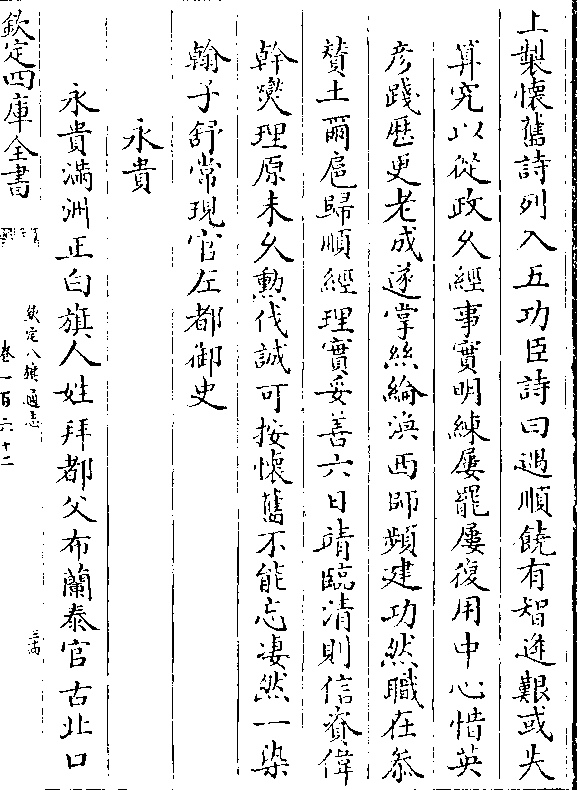 上製懐舊詩列入五功臣詩曰過順饒有智逆艱或失
算究以從政久經事實明練屢罷屢復用中心惜英
彦踐歴更老成遂掌絲綸渙西師頻建功然職在叅
賛土爾扈歸順經理實妥善六日靖臨清則信賚偉
幹爕理原未久勲伐誠可按懐舊不能忘凄然一染
翰子舒常現官左都御史
永貴
永貴滿洲正白旗人姓拜都父布蘭泰官古北口
欽定四庫全書
欽定八旗通志
卷一百六十二